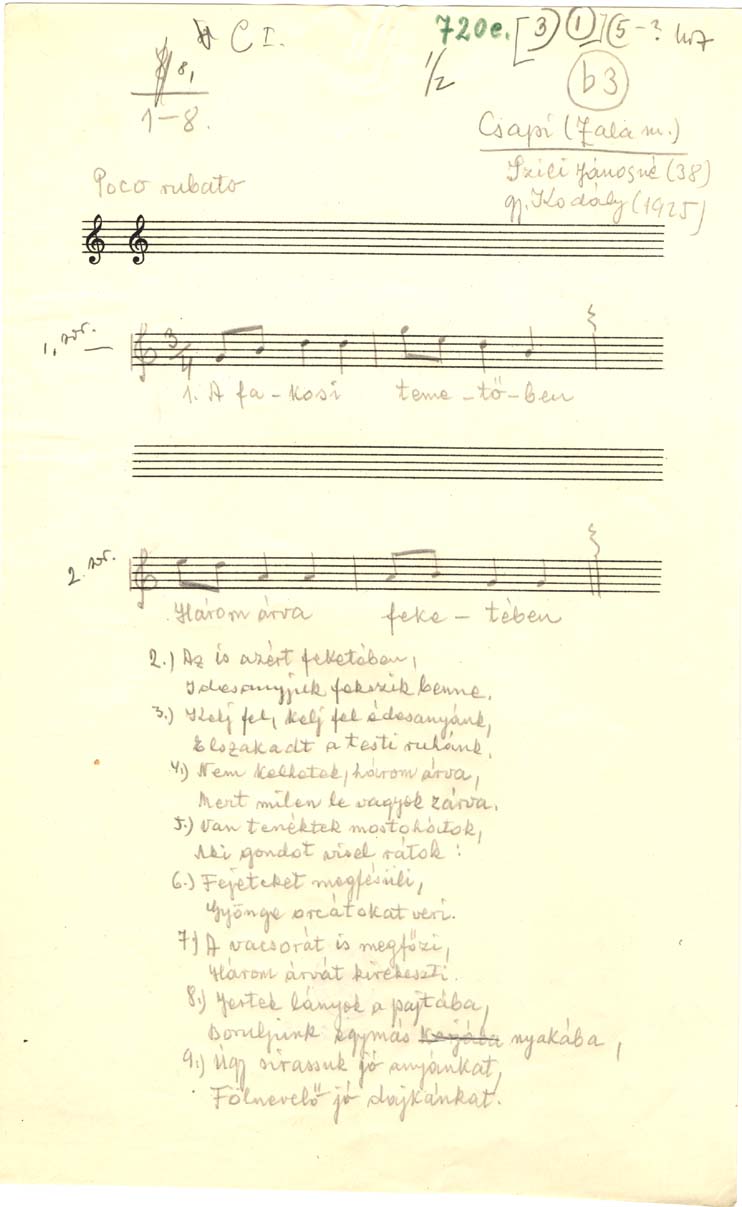 C I. 720e. [3) (1)] (5-?
8,
1/2
b3
1–8.
Csapi (Zala m.)
Szili Jánosné (38)
gy. Kodály (1925)
Poco rubato
1. sor.
3/4
1. A fa-kosi teme-tő-ben
2. sor.
Három árva feke-tében
2.) Az is azért feketében,
Idesanyjuk fekszik benne.
3.) Kelj fel, kelj fel édesanyánk,
Elszakadt a testi ruhánk.
4.) Nem kelhetek, három árva,
Mert milen le vagyok zárva.
5.) Van tenéktek mostohátok,
Aki gondot visel rátok:
6.) Fejeteket megfésüli,
Gyönge orcátokat veri.
7) A vacsorát is megfőzi,
Három árvát kirekeszti.
8.) Jertek lányok a pajtába,
Boruljunk egymás nyakába,
9.) Úgy sirassuk jó anyánkat,
Fölnevelő jó dajkánkat.